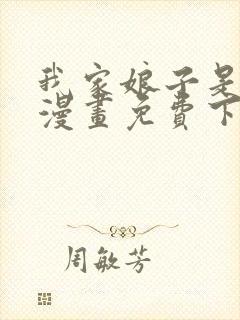 我家娘子是
漫畫免費下
周敏芳